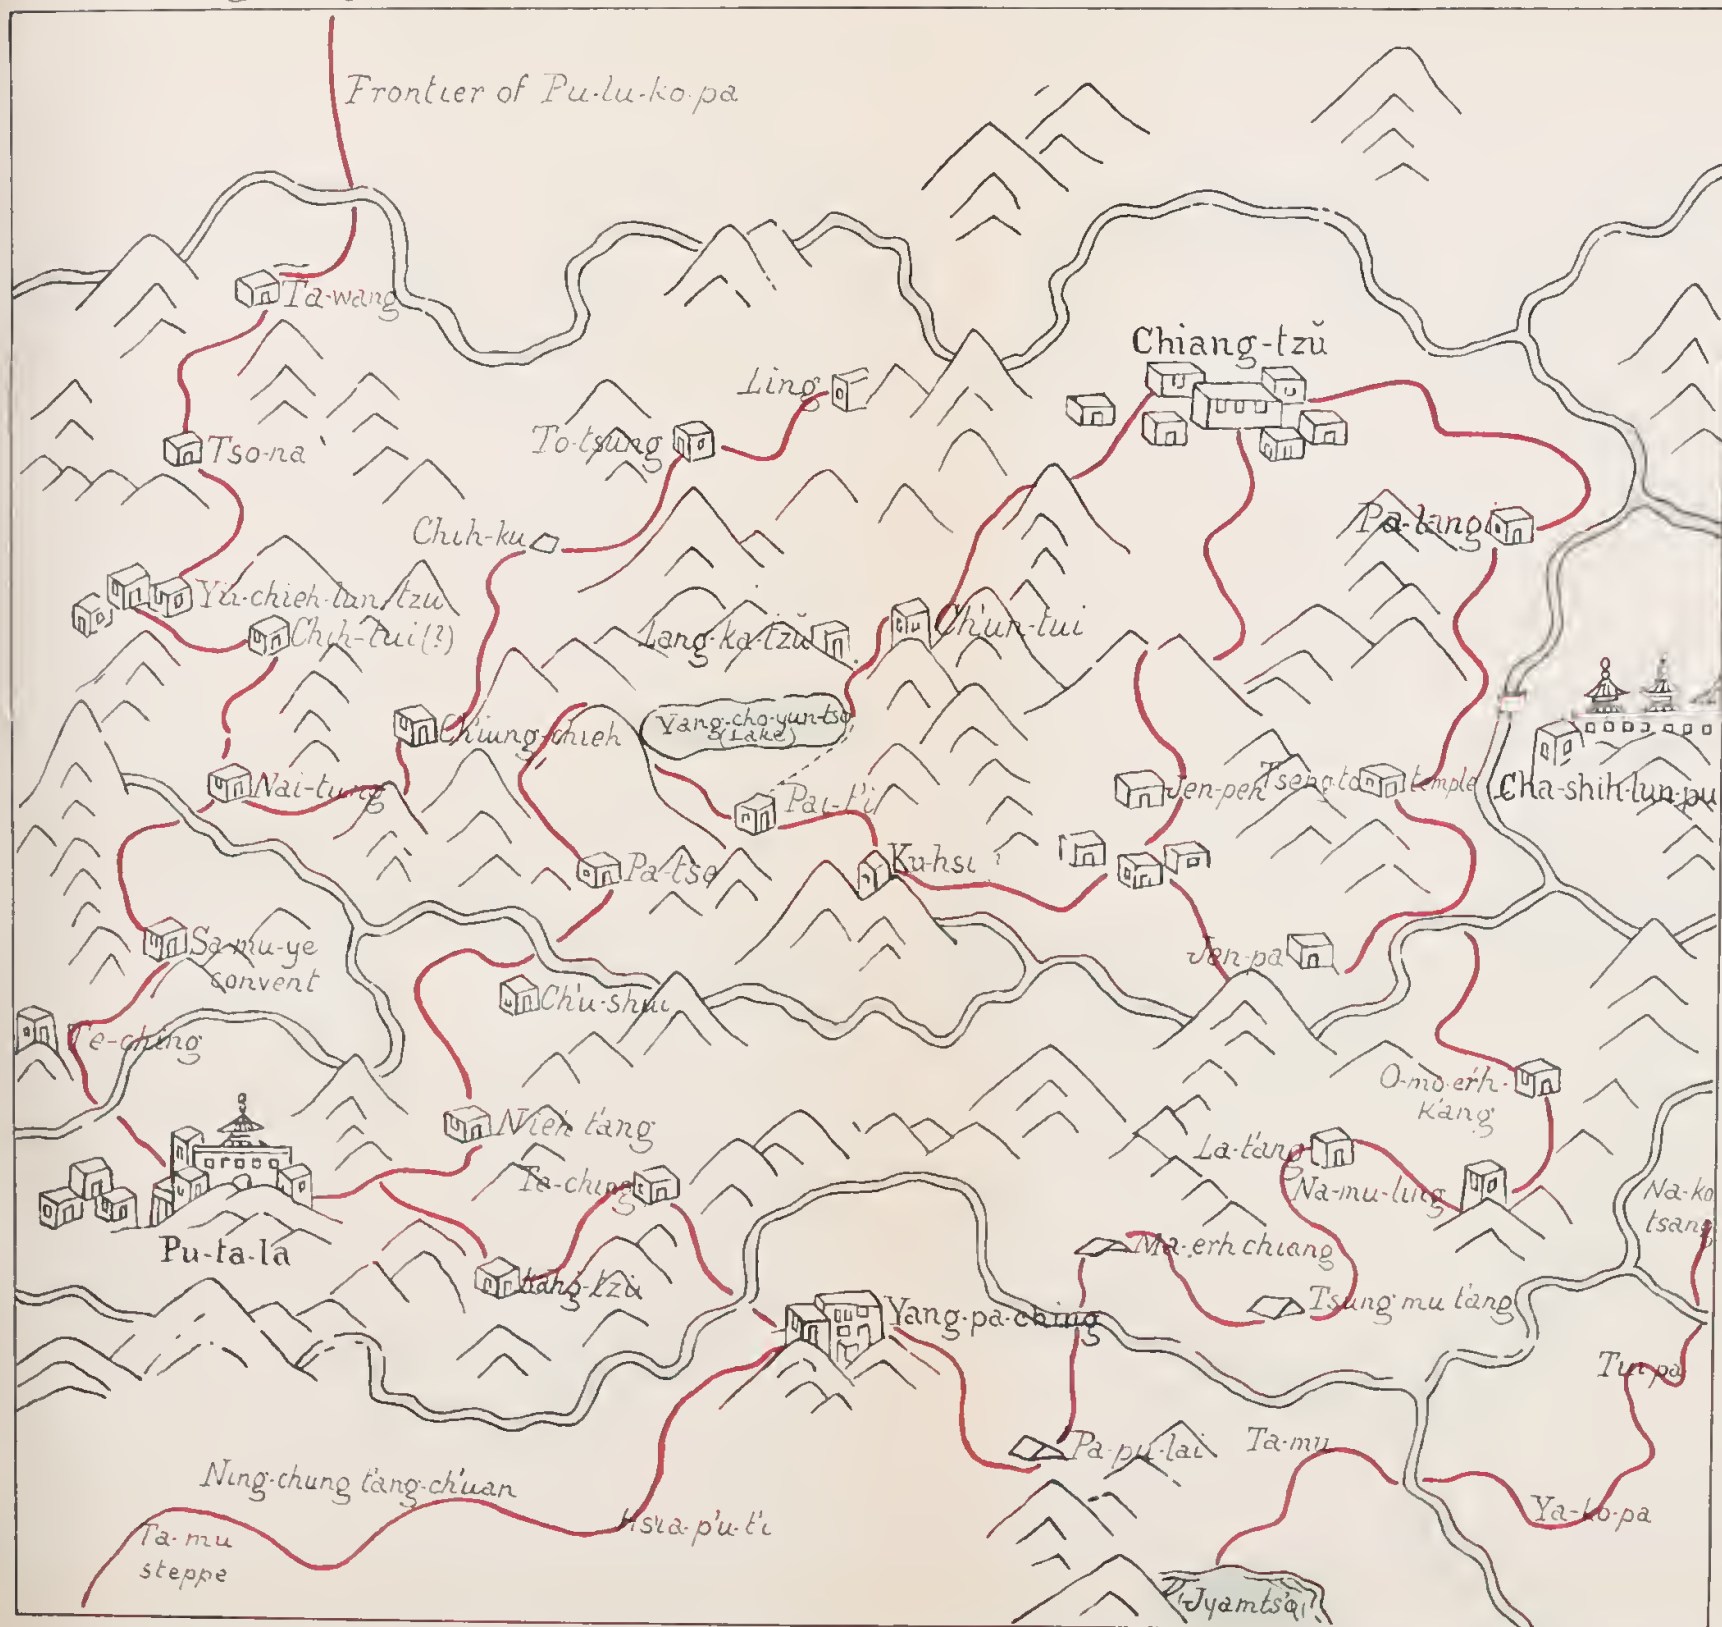 Frontier of Pu-lu-ko-pa
Ta-wang
Chiang-tzŭ
Ling
To-tsung
Tso-na
Pa-lang
Chih-ku
Yü-chieh-lan-tzu
Chih-tui (?)
Lang-ka-tzŭ
Ch'un-tui
Yang-cho-yun-tso
(Lake)
Ch'iung-chieh
Nai-tung
Pai-t'i
Jen-peh
Tseng-to temple
Cha-shih-lun-pu
Pa-tse
Ku-hsi
Sa-mu-ye
convent
Jen-pa
Ch'u-shui
Te-ching
O-mo-erh-
k'ang
Nieh t'ang
La-t'ang
Ta-ching
Na-mu-ling
Na-ko
tsang
Pu-ta-la
Ma-erh chiang
Kang-tzu
Yang-pa-ching
Tsung mu t'ang
Tui-pa
Pa-pu-lai
Ta-mu
Ning-chung t'ang-ch'uan
Hsia-p'u-t'i
Ya-ko-pa
Ta-mu
steppe
Jyamts'o